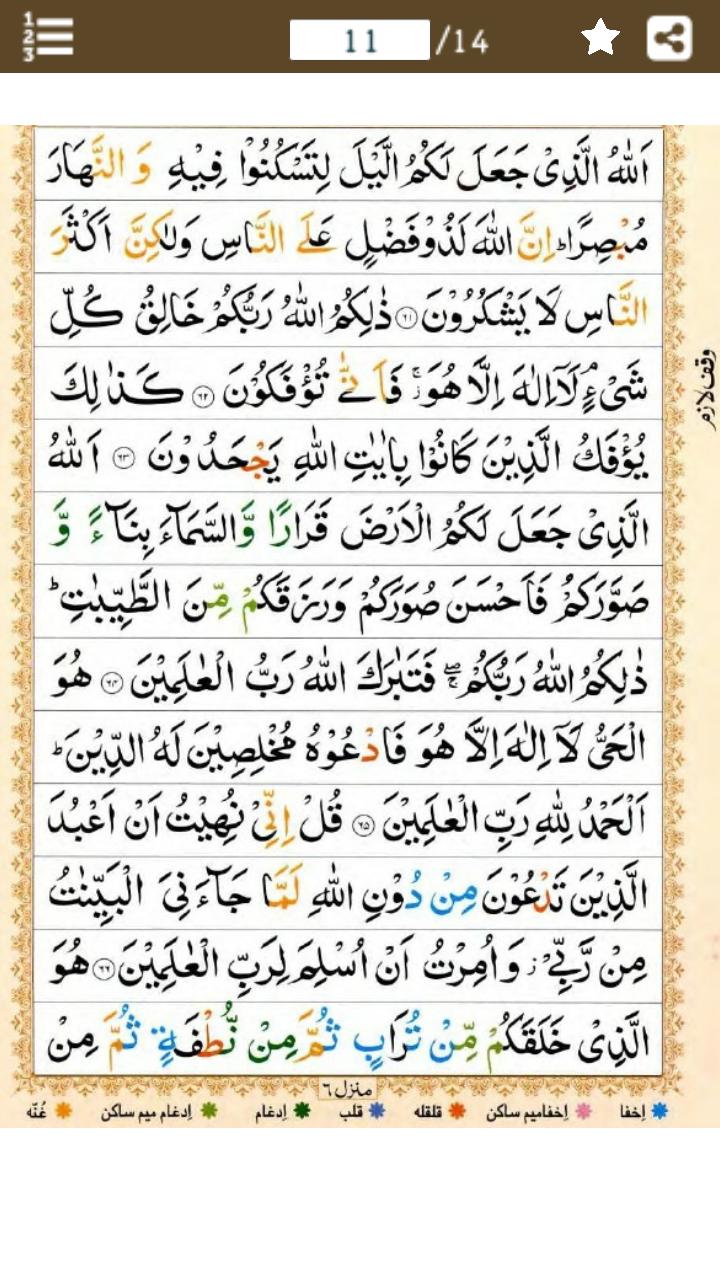 11 /14
اَللّٰهُ الَّذِیْ جَعَلَ لَكُمُ الَّیْلَ لِتَسْكُنُوْا فِیْهِ وَ النَّهَارَ
مُبْصِرًا ؕ اِنَّ اللّٰهَ لَذُوْ فَضْلٍ عَلَی النَّاسِ وَلٰكِنَّ اَكْثَرَ
النَّاسِ لَا یَشْكُرُوْنَ ﴿۶۱﴾ ذٰلِكُمُ اللّٰهُ رَبُّكُمْ خَالِقُ كُلِّ
شَیْءٍ ۘ لَاۤ اِلٰهَ اِلَّا هُوَ ۫ فَاَنّٰی تُؤْفَكُوْنَ ﴿۶۲﴾ كَذٰلِكَ
وقف لازم
یُؤْفَكُ الَّذِیْنَ كَانُوْا بِاٰیٰتِ اللّٰهِ یَجْحَدُوْنَ ﴿۶۳﴾ اَللّٰهُ
الَّذِیْ جَعَلَ لَكُمُ الْاَرْضَ قَرَارًا وَّ السَّمَآءَ بِنَآءً وَّ
صَوَّرَكُمْ فَاَحْسَنَ صُوَرَكُمْ وَرَزَقَكُمْ مِّنَ الطَّیِّبٰتِ ؕ
ذٰلِكُمُ اللّٰهُ رَبُّكُمْ ۖۚ فَتَبٰرَكَ اللّٰهُ رَبُّ الْعٰلَمِیْنَ ﴿۶۴﴾ هُوَ
الْحَیُّ لَاۤ اِلٰهَ اِلَّا هُوَ فَادْعُوْهُ مُخْلِصِیْنَ لَهُ الدِّیْنَ ؕ
اَلْحَمْدُ لِلّٰهِ رَبِّ الْعٰلَمِیْنَ ﴿۶۵﴾ قُلْ اِنِّیْ نُهِیْتُ اَنْ اَعْبُدَ
الَّذِیْنَ تَدْعُوْنَ مِنْ دُوْنِ اللّٰهِ لَمَّا جَآءَنِیَ الْبَیِّنٰتُ
مِنْ رَّبِّیْ ۫ وَ اُمِرْتُ اَنْ اُسْلِمَ لِرَبِّ الْعٰلَمِیْنَ ﴿۶۶﴾ هُوَ
الَّذِیْ خَلَقَكُمْ مِّنْ تُرَابٍ ثُمَّ مِنْ نُّطْفَةٍ ثُمَّ مِنْ
منزل ٦
اِخفا اِخفامیم ساکن قلقله قلب اِدغام اِدغام میم ساکن غُنّه